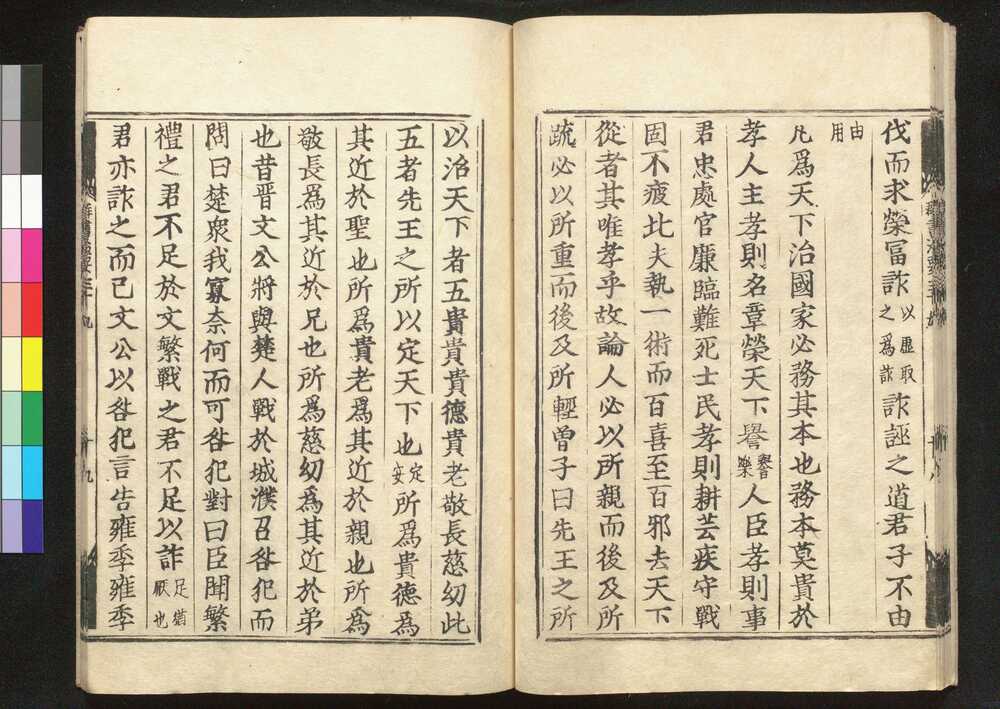 伐而求榮冨詐以虚取之爲詐詐誣之道君子不由
由用
凡爲天下治國家必務其本也務本莫貴於
孝人主孝則名章榮天下譽譽樂人臣孝則事
君忠處官廉臨難死士民孝則耕芸疾守戰
固不疲比夫執一術而百喜至百邪去天下
從者其唯孝乎故論人必以所親而後及所
疏必以所重而後及所輕曽子曰先王之所
以治天下者五貴貴貴德貴老敬長慈幼此
五者先王之所以定天下也定安所爲貴德爲
其近於聖也所爲貴老爲其近於親也所爲
敬長爲其近於兄也所爲慈幼爲其近於弟
也昔晋文公將與楚人戰於城濮召咎犯而
問曰楚衆我寡奈何而可咎犯對曰臣聞繁
禮之君不足於文繁戰之君不足以詐足猶厭也
君亦詐之而已文公以咎犯言告雍季雍季
群書治要三十九
十九